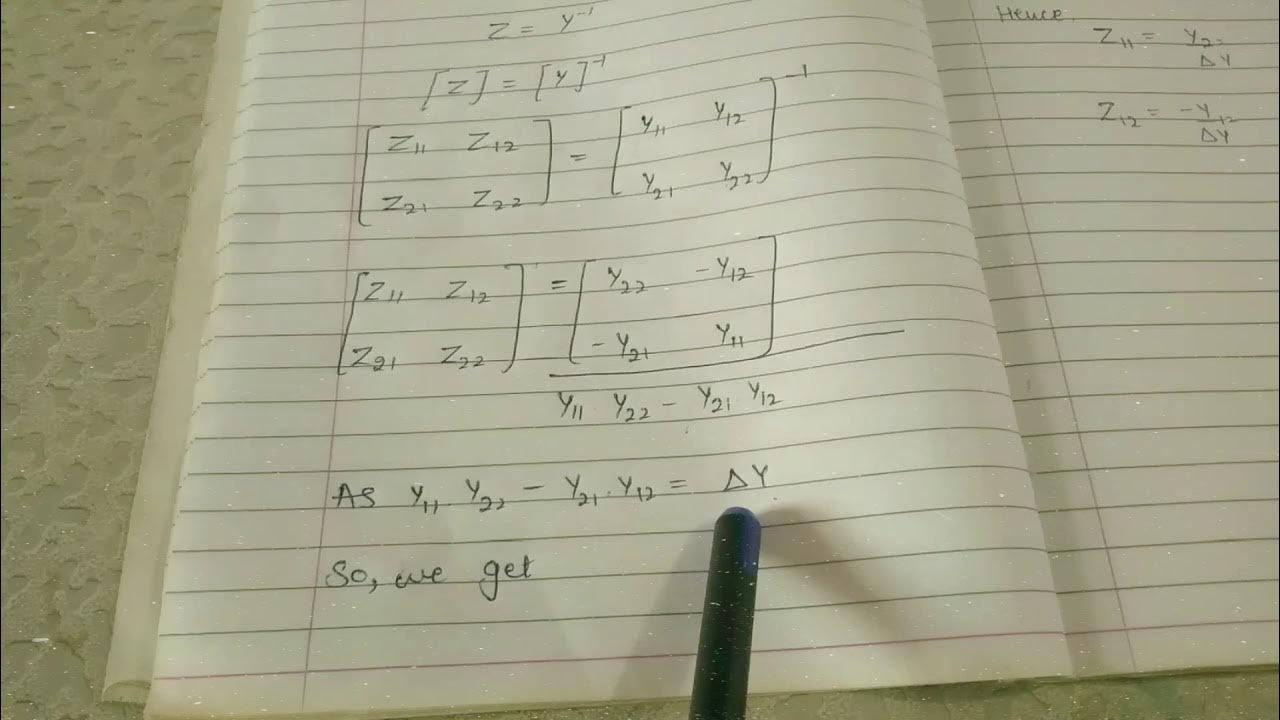 Z = Y⁻¹
[Z] = [Y]⁻¹
[Z₁₁ Z₁₂ = [Y₁₁ Y₁₂]⁻¹
Z₂₁ Z₂₂] Y₂₁ Y₂₂
[Z₁₁ Z₁₂ = [Y₂₂ -Y₁₂
Z₂₁ Z₂₂] -Y₂₁ Y₁₁]
Y₁₁ Y₂₂ - Y₂₁ Y₁₂
As Y₁₁ Y₂₂ - Y₂₁ . Y₁₂ = ΔY
So, we get
Hence
Z₁₁ = Y₂₂
ΔY
Z₁₂ = -Y₁₂
ΔY